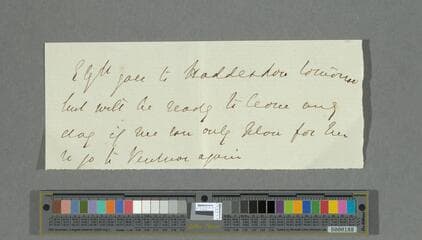 goes to Haddenham tomorrow
but will be ready to leave any
day if we can only plan for her
to go to Ventnor again